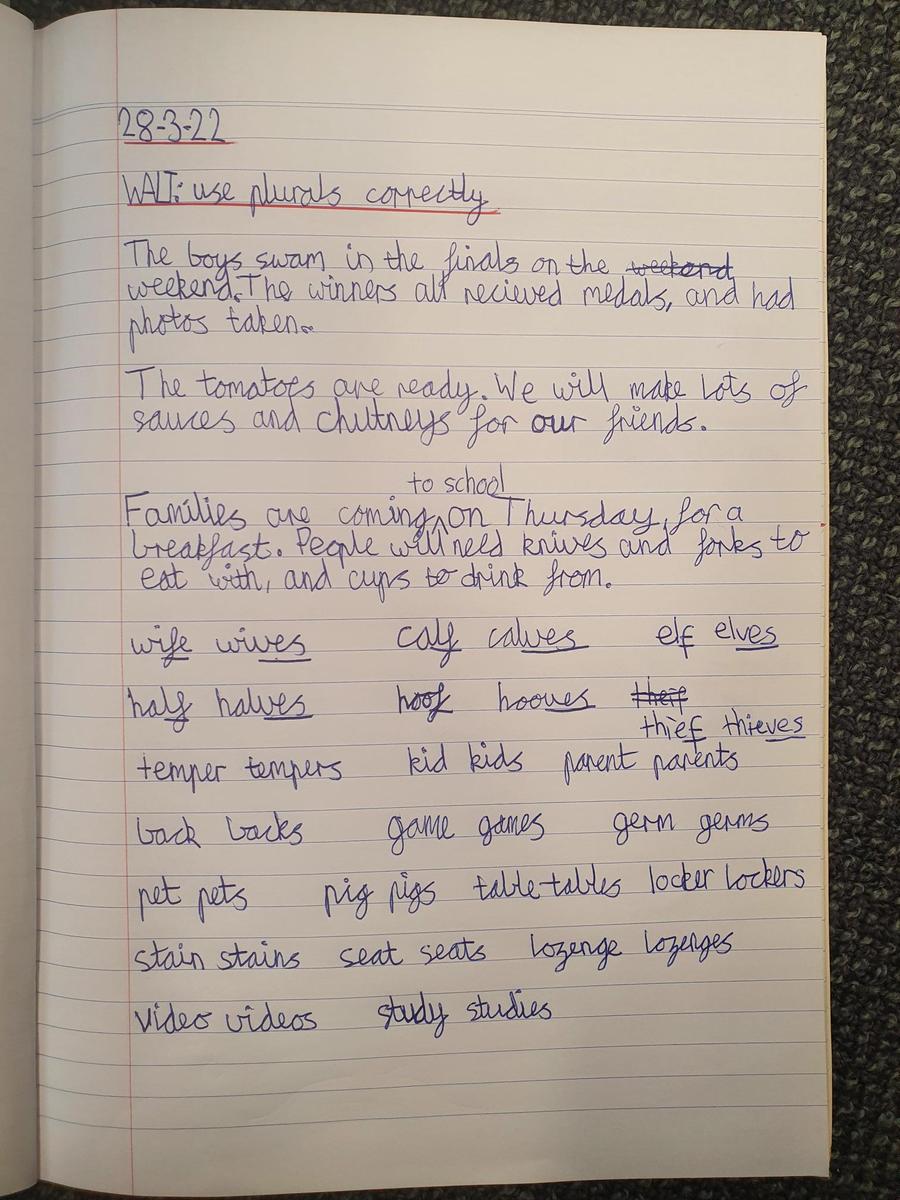 28-3-22
WALT: use plurals correctly
The boys swam in the finals on the weekend
weekend. The winners all recieved medals, and had
photos taken.
The tomatoes are ready. We will make lots of
sauces and chutneys for our friends.
to school
Families are coming ^ on Thursday, for a
breakfast. People will need knives and forks to
eat with, and cups to drink from.
wife wives calf calves elf elves
half halves hoof hooves theif
thief thieves
temper tempers kid kids parent parents
back backs game games germ germs
pet pets pig pigs table tables locker lockers
stain stains seat seats lozenge lozenges
video videos study studies